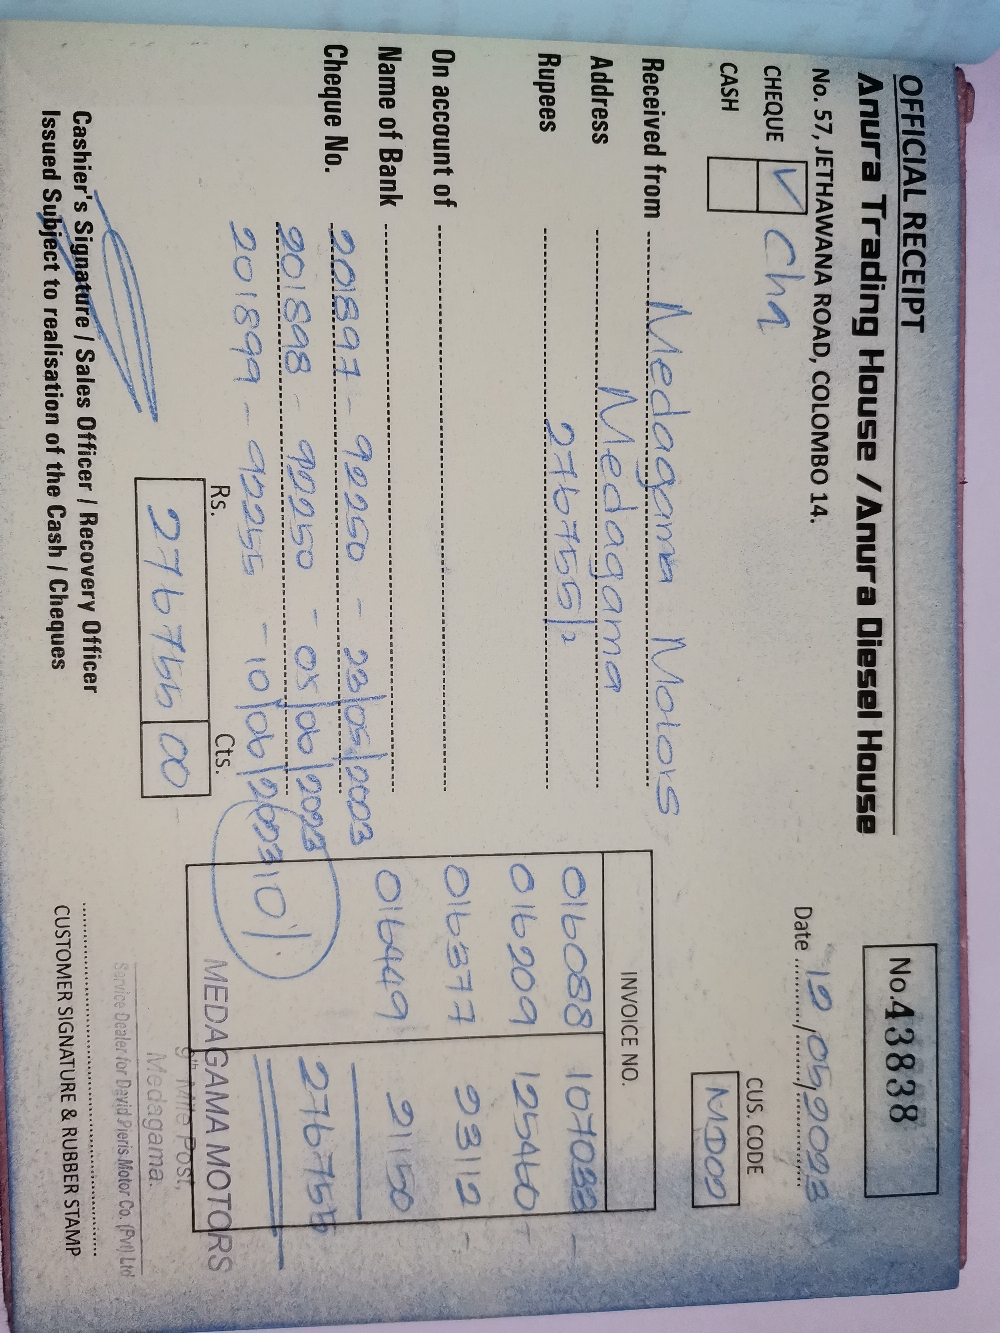 OFFICIAL RECEIPT
Anura Trading House / Anura Diesel House
No. 43838
No. 57, JETHAWANA ROAD, COLOMBO 14.
Date 12/05/2023
CHEQUE ✓ Cha
CASH
CUS. CODE
MD02
Received from Medagama Motors
Address Medagama
Rupees 276755/=
On account of
Name of Bank
Cheque No. 201897 - 92250 - 23/05/2023
201898 - 92250 - 05/06/2023
201899 - 92255 - 10/06/2023
101
INVOICE NO.
016088 107033 -
016209 125460 -
016377 23112 -
016449 21150
276755
Rs. Cts.
276755 00
MEDAGAMA MOTORS
9th Mile Post,
Medagama.
Service Dealer for David Pieris Motor Co. (Pvt) Ltd
Cashier's Signature / Sales Officer / Recovery Officer
Issued Subject to realisation of the Cash / Cheques
CUSTOMER SIGNATURE & RUBBER STAMP